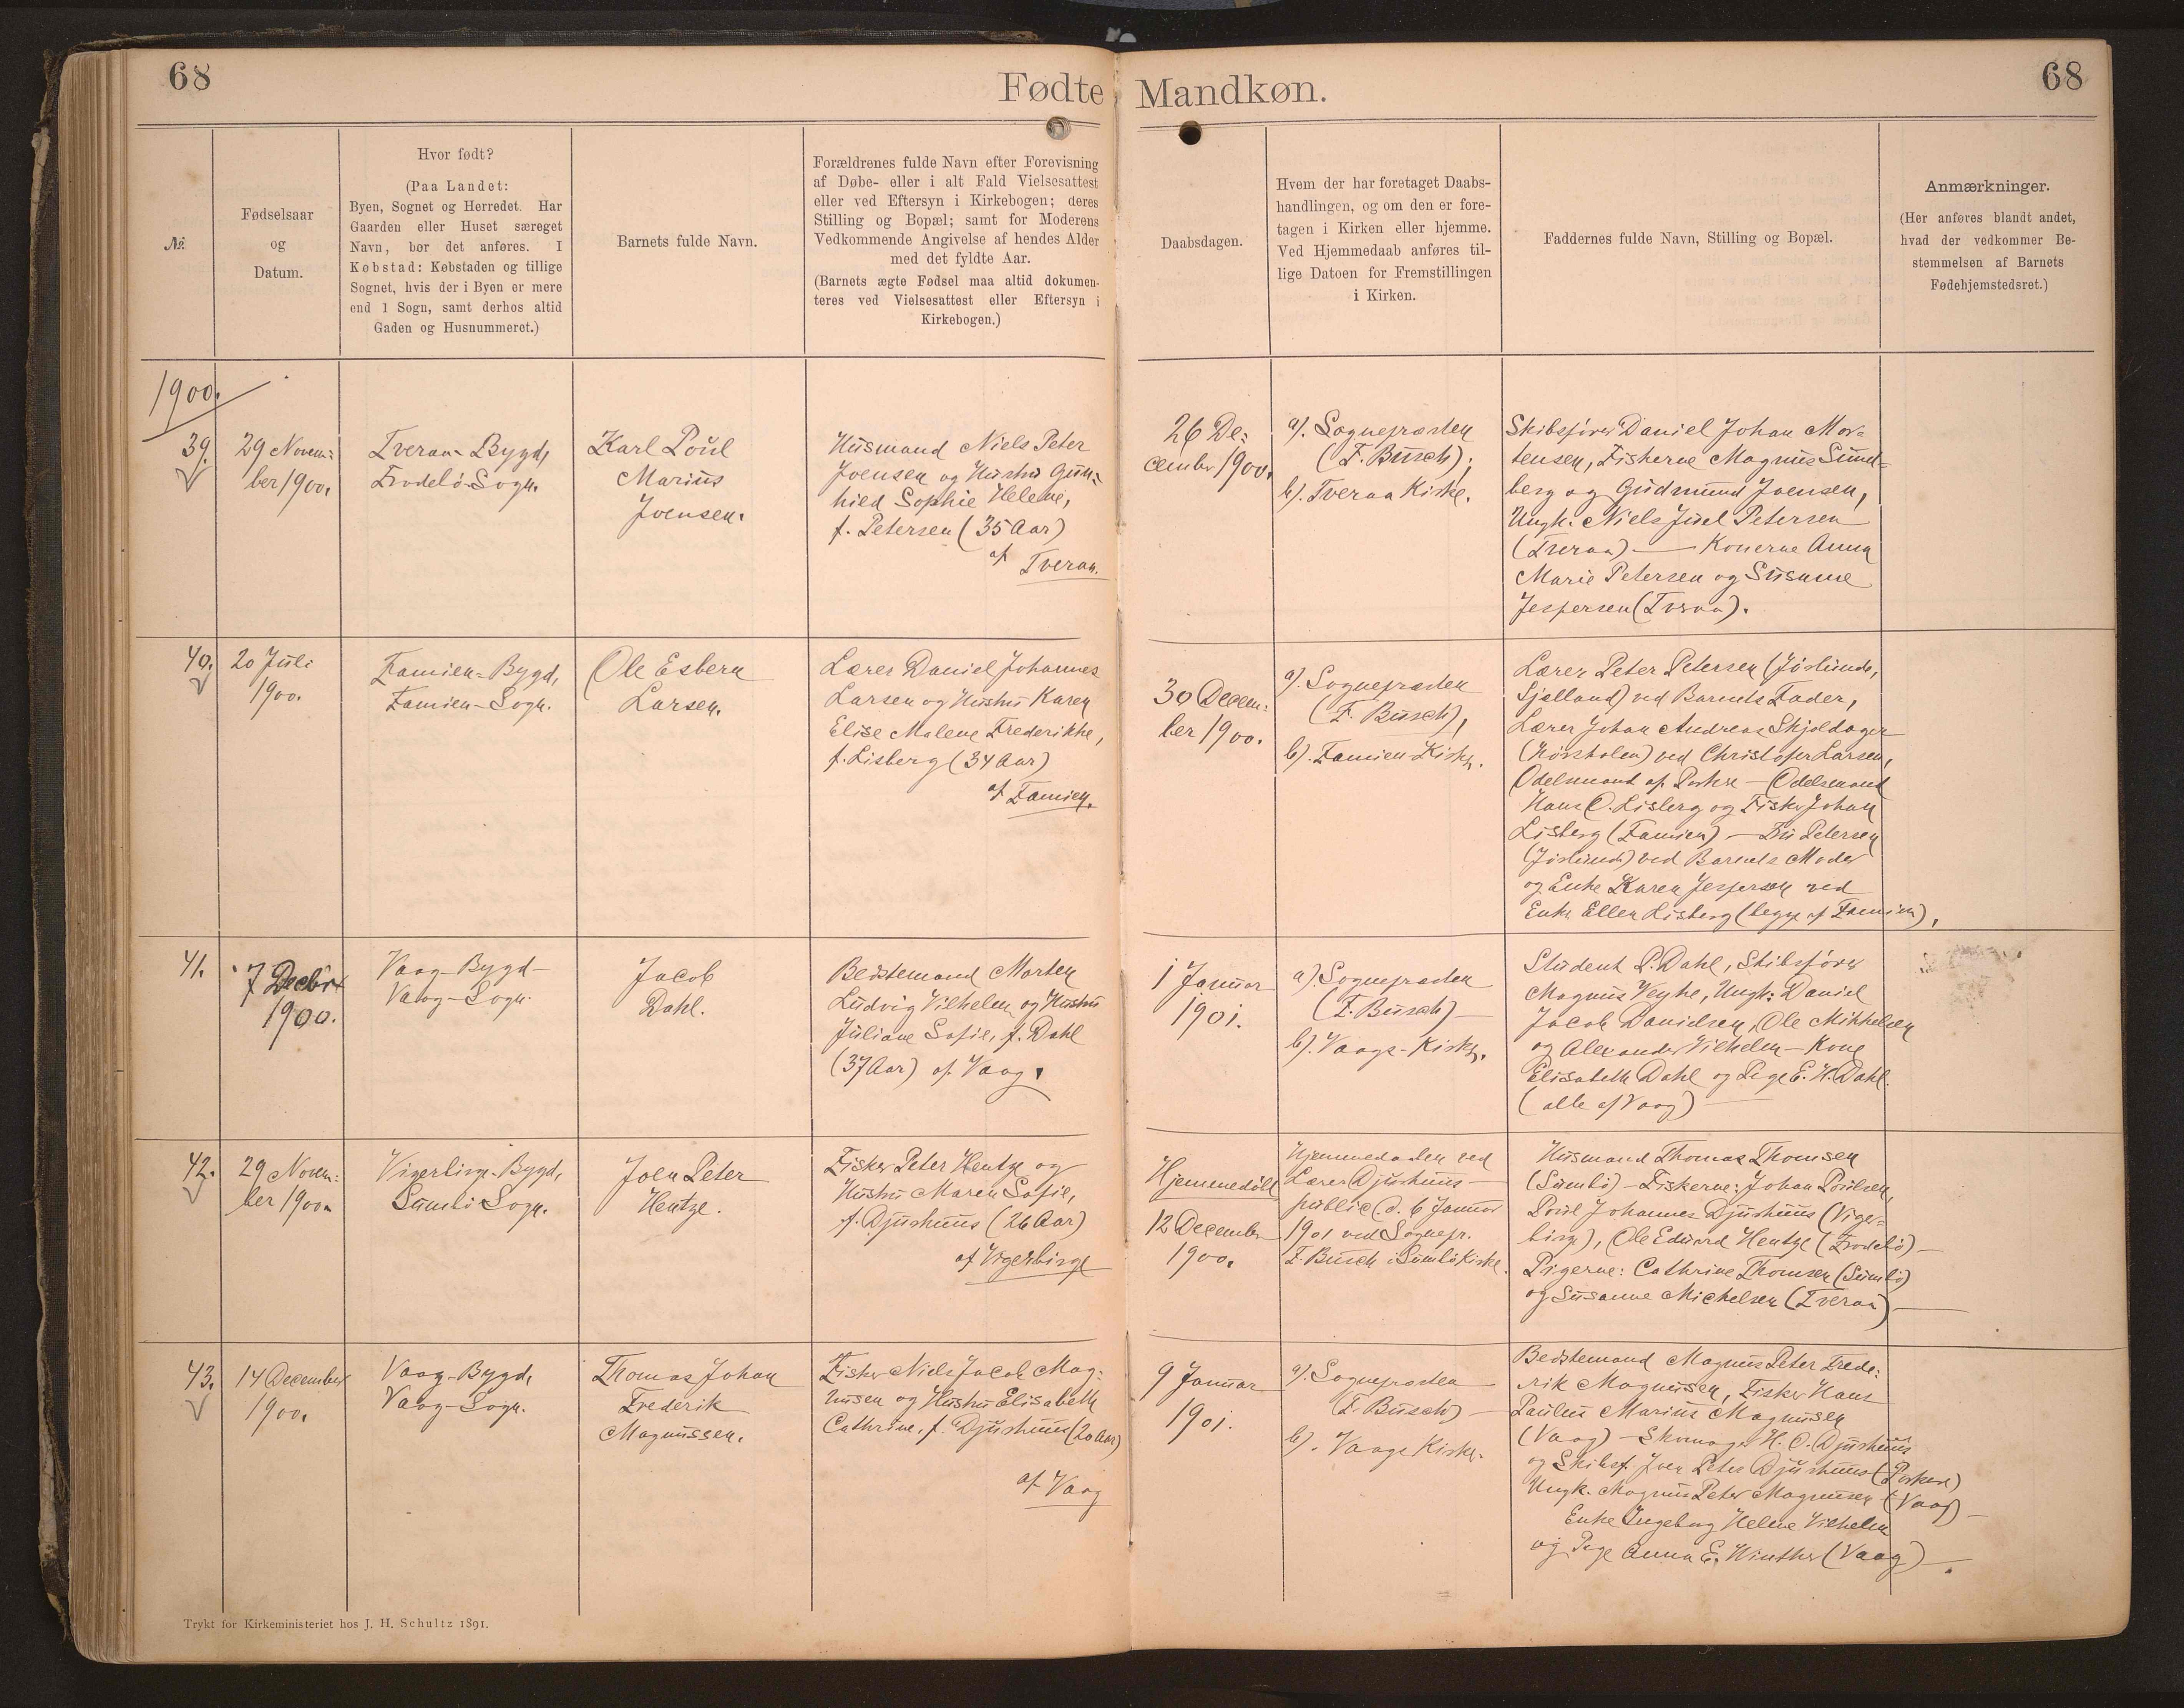 68
Fødte Mandkøn.
68
№.
Fødselsaar
og
Datum.
Hvor født?
(Paa Landet:
Byen, Sognet og Herredet. Har
Gaarden eller Huset særeget
Navn, bør det anføres. I
Købstad: Købstaden og tillige
Sognet, hvis der i Byen er mere
end 1 Sogn, samt derhos altid
Gaden og Husnummeret.)
Barnets fulde Navn.
Forældrenes fulde Navn efter Forevisning
af Døbe- eller i alt Fald Vielsesattest
eller ved Eftersyn i Kirkebogen; deres
Stilling og Bopæl; samt for Moderens
Vedkommende Angivelse af hendes Alder
med det fyldte Aar.
(Barnets ægte Fødsel maa altid dokumen-
teres ved Vielsesattest eller Eftersyn i
Kirkebogen.)
Daabsdagen.
Hvem der har foretaget Daabs-
handlingen, og om den er fore-
tagen i Kirken eller hjemme.
Ved Hjemmedaab anføres til-
lige Datoen for Fremstillingen
i Kirken.
Faddernes fulde Navn, Stilling og Bopæl.
Anmærkninger.
(Her anføres blandt andet,
hvad der vedkommer Be-
stemmelsen af Barnets
Fødehjemstedsret.)
1900.
39.
29 Novem=
ber 1900.
Tveraa-Bygd,
Frodebö-Sogn.
Karl Poul
Marius
Joensen.
Husmand Niels Peter
Joensen og Hustru Gun=
hild Sophie Helene,
f. Petersen (35 Aar)
af Tveraa.
26 De=
cember 1900.
a). Sognepræsten
(F. Busch);
b). Tveraa Kirke.
Skibsfører Daniel Johan Mor=
tensen, Fiskerne Magnus Sund=
berg og Gudmund Joensen,
Ungk. Niels Juel Petersen
(Tveraa) — Konerne Anna
Marie Petersen og Susanne
Jespersen (Tveraa).
40.
20 Juli
1900.
Famien-Bygd,
Famien-Sogn.
Ole Esbern
Larsen.
Lærer Daniel Johannes
Larsen og Hustru Karen
Elise Malene Frederikke,
f. Lisberg (34 Aar)
af Famien.
30 Decem=
ber 1900.
a). Sognepræsten
(F. Busch),
b). Famien-Kirke.
Lærer Peter Petersen (Jörlunde,
Sjælland) ved Barnets Fader,
Lærer Johan Andreas Skjoldager
ved Christofer Larsen,
Odelsmand af Porkere — Odelsmand
Hans O. Lisberg og Fisker Johan
Lisberg (Famien) — Fru Petersen
(Jörlunde) ved Barnets Moder
og Enke Karen Jespersen ved
Enke Ellen Lisberg (begge af Famien).
41.
7 Decbr
1900.
Vaag-Bygd-
Vaag-Sogn.
Jacob
Dahl.
Bedstemand Morten
Ludvig Vilhelm og Hustru
Juliane Sofie, f. Dahl
(37 Aar) af Vaag.
1 Januar
1901.
a). Sognepræsten
(F. Busch) —
b). Vaags-Kirke.
Student P. Dahl, Skibsfører
Magnus Veyhe, Ungk: Daniel
Jacob Danielsen, Ole Mikkelsen
og Alexander Vilhelm — Kone
Elisabeth Dahl og Pige E. H. Dahl.
(alle af Vaag)
42.
29 Novem=
ber 1900.
Vigerbirge-Bygd,
Sumbö Sogn.
Joen Peter
Hentze.
Fisker Peter Hentze og
Hustru Maren Sofie,
f. Djurhuus (26 Aar)
af Vigerbirge
Hjemmedöbt
12 December
1900.
Hjemmedaaben ved
Lærer Djurhuus —
public. d. 6 Januar
1901 ved Sognepr.
F. Busch i Sumbö Kirke.
Husmand Thomas Thomsen
(Sumbö) — Fiskerne: Johan Poulsen,
Poul Johannes Djurhuus (Viger=
birge), Ole Edvard Hentze (Frodebö) —
Pigerne: Cathrine Thomsen (Sumbö)
og Susanne Michelsen (Tveraa) —
43.
14 December
1900.
Vaag-Bygd,
Vaag-Sogn.
Thomas Johan
Frederik
Magnussen.
Fisker Niels Jacob Mag=
nusen og Hustru Elisabeth
Cathrine, f. Djurhuus (20 Aar)
af Vaag
9 Januar
1901.
a). Sognepræsten
(F. Busch) —
b). Vaags Kirke.
Bedstemand Magnus Peter Frede=
rik Magnusen, Fisker Hans
Paulus Marius Magnusen
(Vaag) — Skomager H. O. Djurhuus
og Skibsf. Joen Peter Djurhuus (Porkere)
Ungk. Magnus Peter Magnusen (Vaag) —
Enke Ingeborg Helene Vilhelm
og Pige Anna E. Winther (Vaag) —.
Trykt for Kirkeministeriet hos J. H. Schultz 1891.